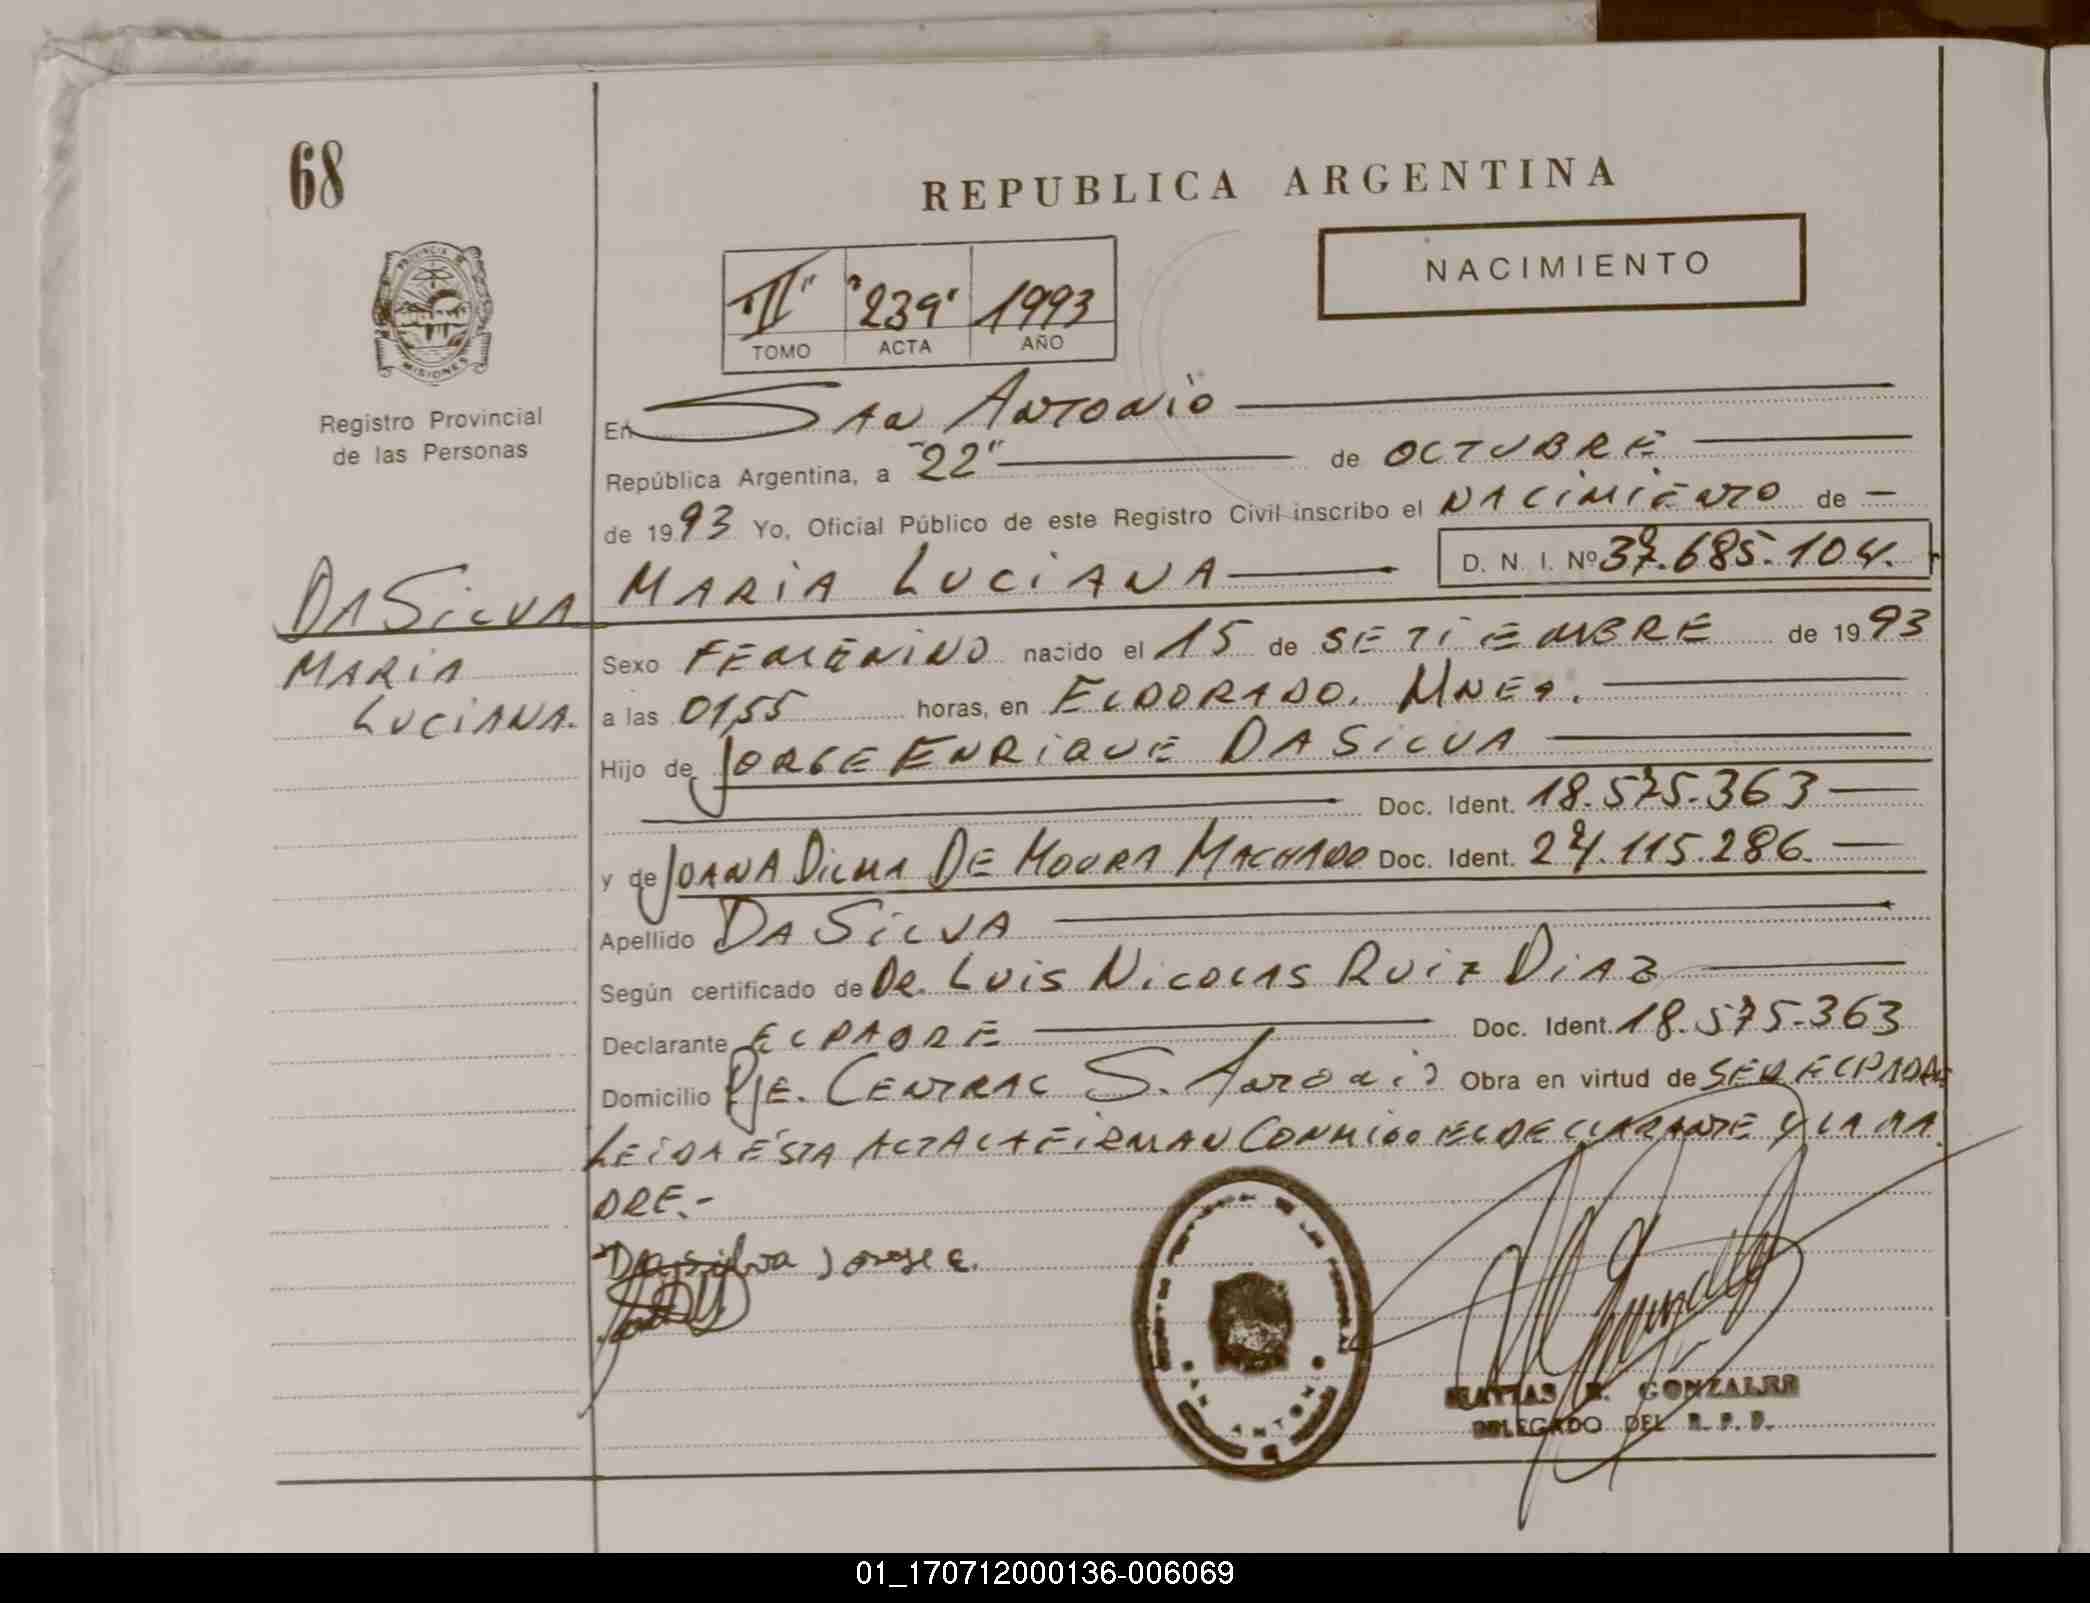 68
REPUBLICA ARGENTINA
NACIMIENTO
"II" "239" 1993
TOMO ACTA AÑO
PROVINCIA DE
MISIONES
Registro Provincial
de las Personas
En San Antonio
República Argentina, a "22" de OCTUBRE
de 1993 Yo, Oficial Público de este Registro Civil inscribo el NACIMIENTO de -
DA SILVA MARIA LUCIANA D. N. I. Nº 37.685.104.
MARIA
LUCIANA.
Sexo FEMENINO nacido el 15 de SETIEMBRE de 1993
a las 01,55 horas, en ELDORADO. MNES.
Hijo de JORGE ENRIQUE DA SILVA
Doc. Ident. 18.575.363
y de JOANA DILMA DE MOURA MACHADO Doc. Ident. 24.115.286.
Apellido DA SILVA
Según certificado de DR. LUIS NICOLAS RUIZ DIAZ
Declarante EL PADRE Doc. Ident. 18.575.363
Domicilio PJE. CENTRAL S. ANTONIO Obra en virtud de SER EL PADRE
LEIDA ÉSTA ACTA LA FIRMAN CONMIGO EL DECLARANTE Y LA MA
DRE.-
Dasilva Jorge E.
MATIAS GONZALES
DELEGADO DEL R. P. P.
01_170712000136-006069